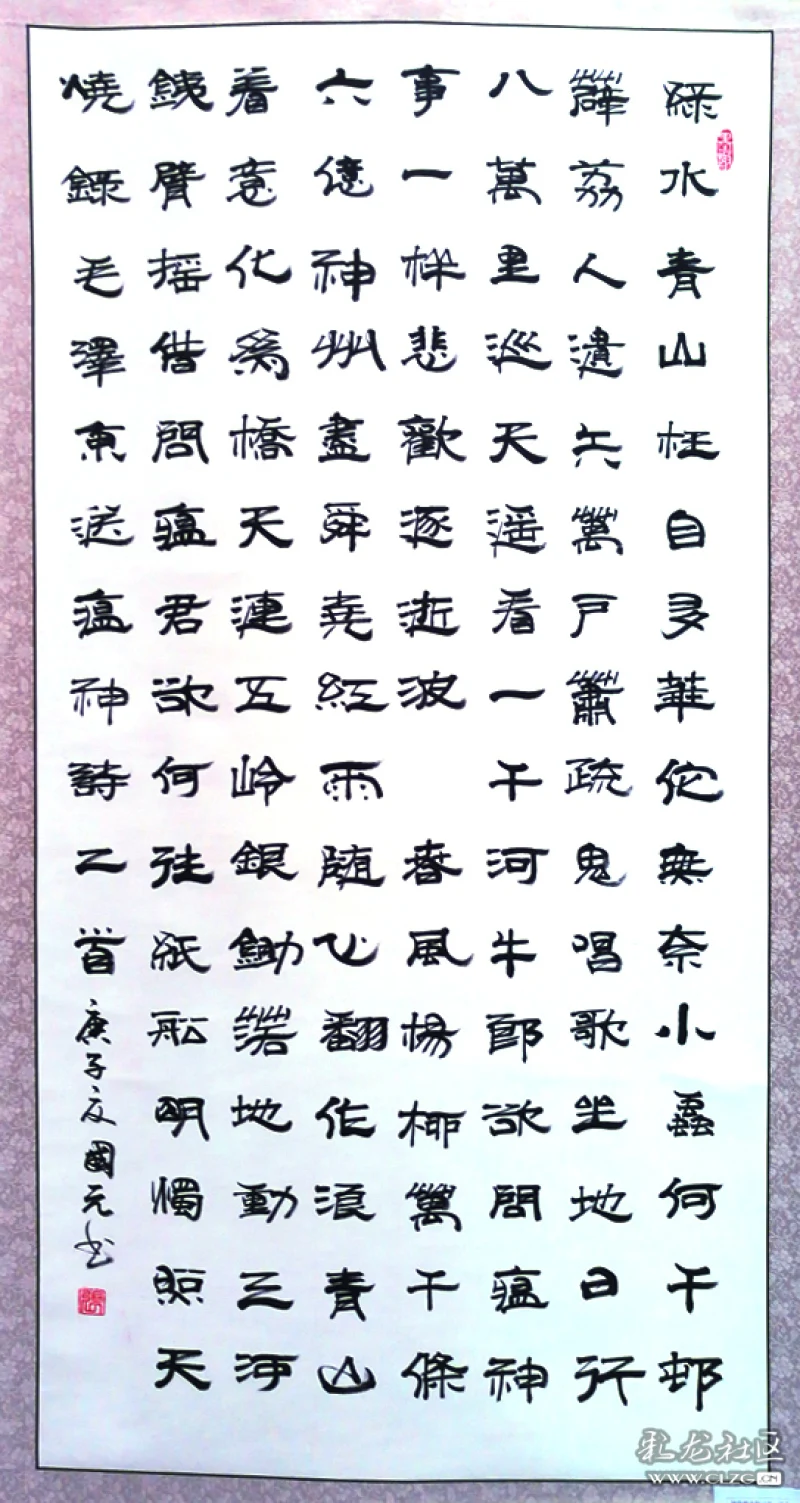 綠水青山枉自多華佗無奈小蟲何千邨
薜荔人遺矢萬戶蕭疏鬼唱歌坐地日行
八萬里巡天遥看一千河牛郎欲問瘟神
事一樣悲歡逐逝波 春風楊柳萬千條
六億神州盡舜堯紅雨随心翻作浪青山
着意化為橋天連五岭銀鋤落地動三河
鐵臂摇借問瘟君欲何往紙船明燭照天
燒錄毛澤東送瘟神詩二首 庚子夏國元书
彩龙社区
WWW.CLZG.CN